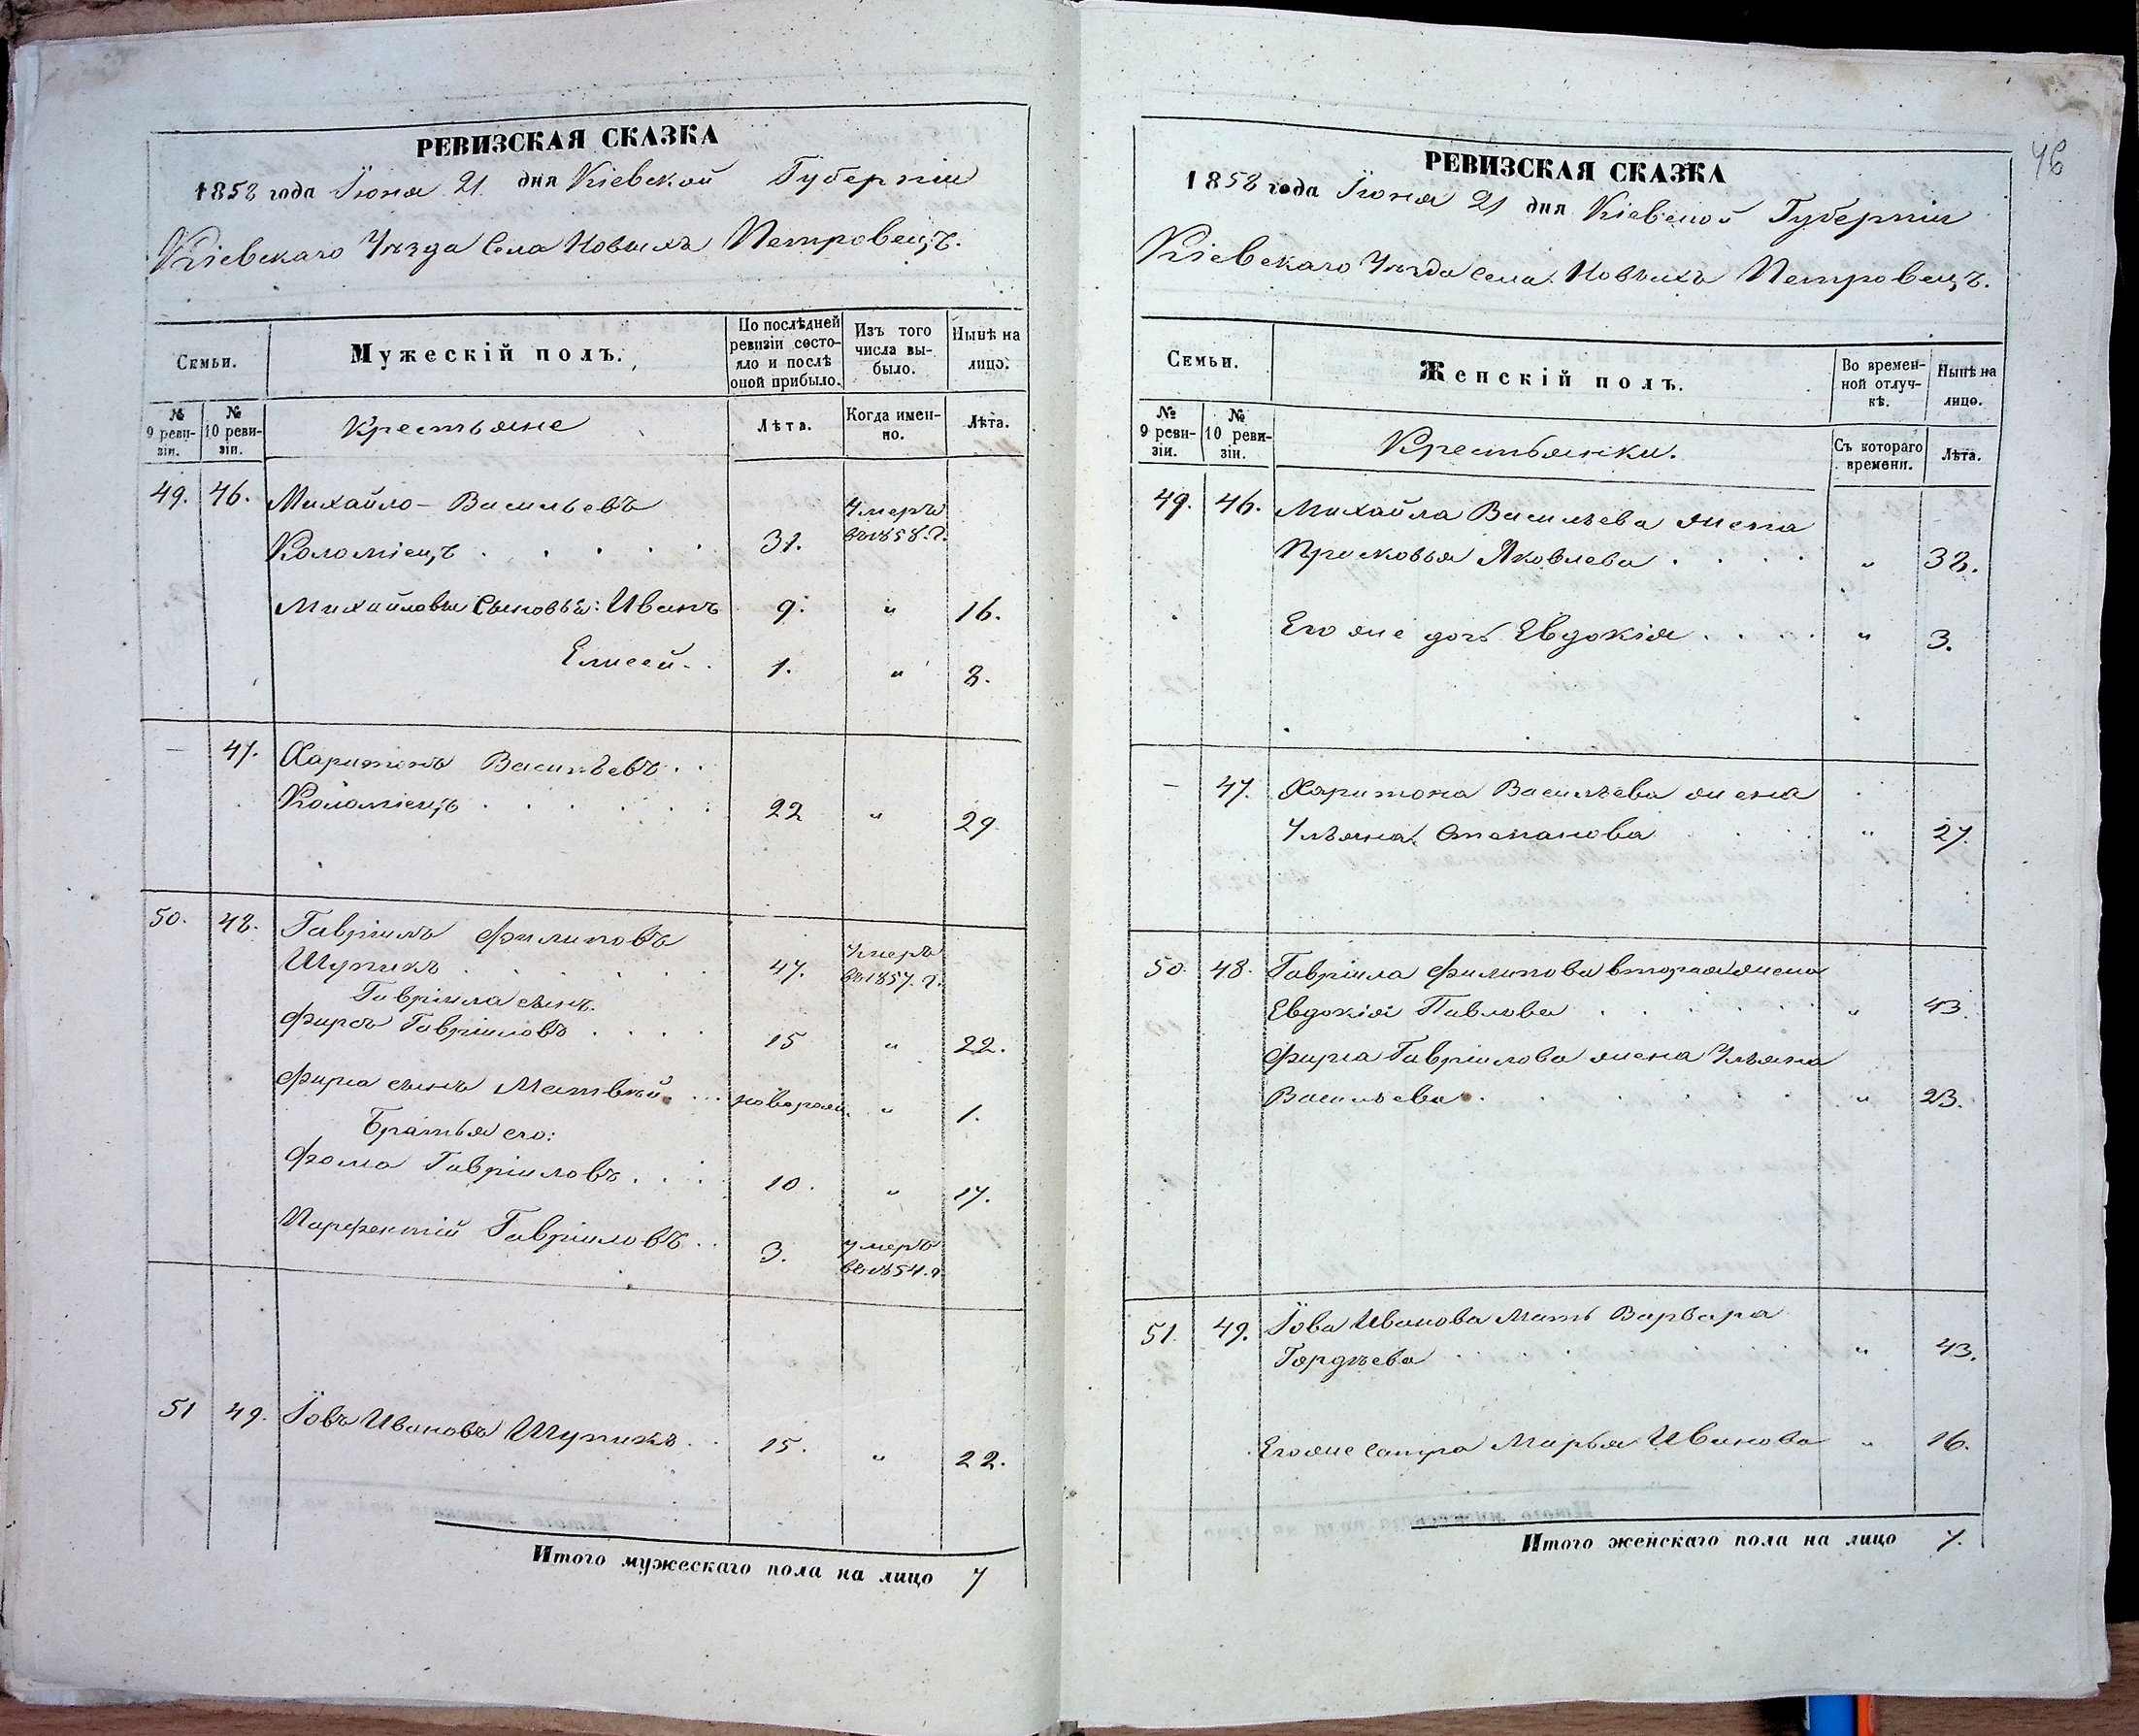 РЕВИЗСКАЯ СКАЗКА
1858 года Іюня 21 дня Кіевской Губерніи
Кіевскаго Уѣзда Села Новыхъ Петровецъ.
Семьи.
Мужескій полъ.
По послѣдней ревизіи состояло и послѣ оной прибыло.
Изъ того числа выбыло.
Нынѣ на лицо.
№ 9 ревизіи.
№ 10 ревизіи.
Крестьяне
Лѣта.
Когда именно.
Лѣта.
49. 46. Михайло Васильевъ Умеръ
Коломіецъ . . . . . 31. въ 1858. г.
Михайловы Сыновья: Иванъ 9. " 16.
Елисей . . 1. " 8.
— 47. Харитонъ Васильевъ . .
Коломіецъ . . . . . . 22 " 29
50. 48. Гавріилъ Филиповъ Умеръ
Шупикъ . . . . . . 47. въ 1857. г.
Гавріила сынъ
Фирсъ Гавріиловъ . . . . 15 " 22.
Фирса сынъ Матвѣй . . . новорож. " 1.
Братья его:
Фома Гавріиловъ . . . 10. " 17.
Парфентій Гавріиловъ . . 3. умеръ
въ 1854. г.
51 49. Іовъ Ивановъ Шупикъ . . 15. " 22.
Итого мужескаго пола на лицо 7
46
РЕВИЗСКАЯ СКАЗКА
1858 года Іюня 21 дня Кіевской Губерніи
Кіевскаго Уѣзда Села Новыхъ Петровецъ.
Семьи.
Женскій полъ.
Во временной отлучкѣ.
Нынѣ на лицо.
№ 9 ревизіи.
№ 10 ревизіи.
Крестьянки.
Съ котораго времени.
Лѣта.
49. 46. Михайла Васильева жена
Просковья Яковлева . . . . " 38.
Его же дочь Евдокія . . . . " 3.
— 47. Харитона Васильева жена
Ульяна Степанова . . . " 27.
50. 48. Гавріила Филипова вторая жена
Евдокія Павлова . . . . . . " 43.
Фирса Гавріилова жена Ульяна
Васильева . . . . . . " 23.
51. 49. Іова Иванова Мать Варвара
Гордѣева . . . . . . " 43.
Его же сестра Марья Иванова " 16.
Итого женскаго пола на лицо 7.